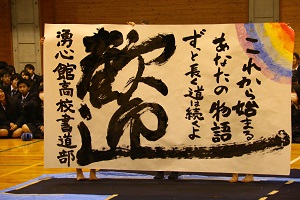 これから始まる
あなたの物語
ずっと長く道は続くよ
歓迎
湧心館高校書道部